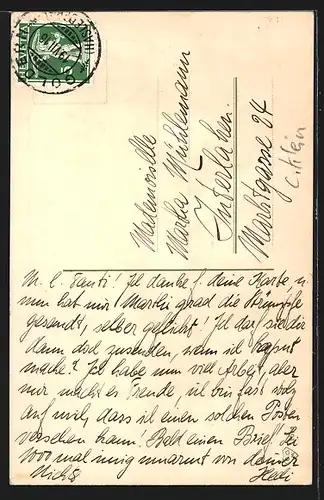 HELVETIA
Mademoiselle
Martha Mühlemann
Interlaken
Marktgasse 24
M. l. Tanti! Ich danke f. deine Karte, u.
nun hat mir Marthi grad die Strümpfe
gesandt, selber geflickt! Ich darf sie dir
dann doch zusenden, wenn sie kaput
mache? Ich habe nun viel Arbeit, aber
mir macht es Freude, ich bin fast stolz
auf mich, dass ich einen solchen Posten
versehen kann. Bald einen Brief. Sei
1000 mal innig umarmt von deiner
Heli